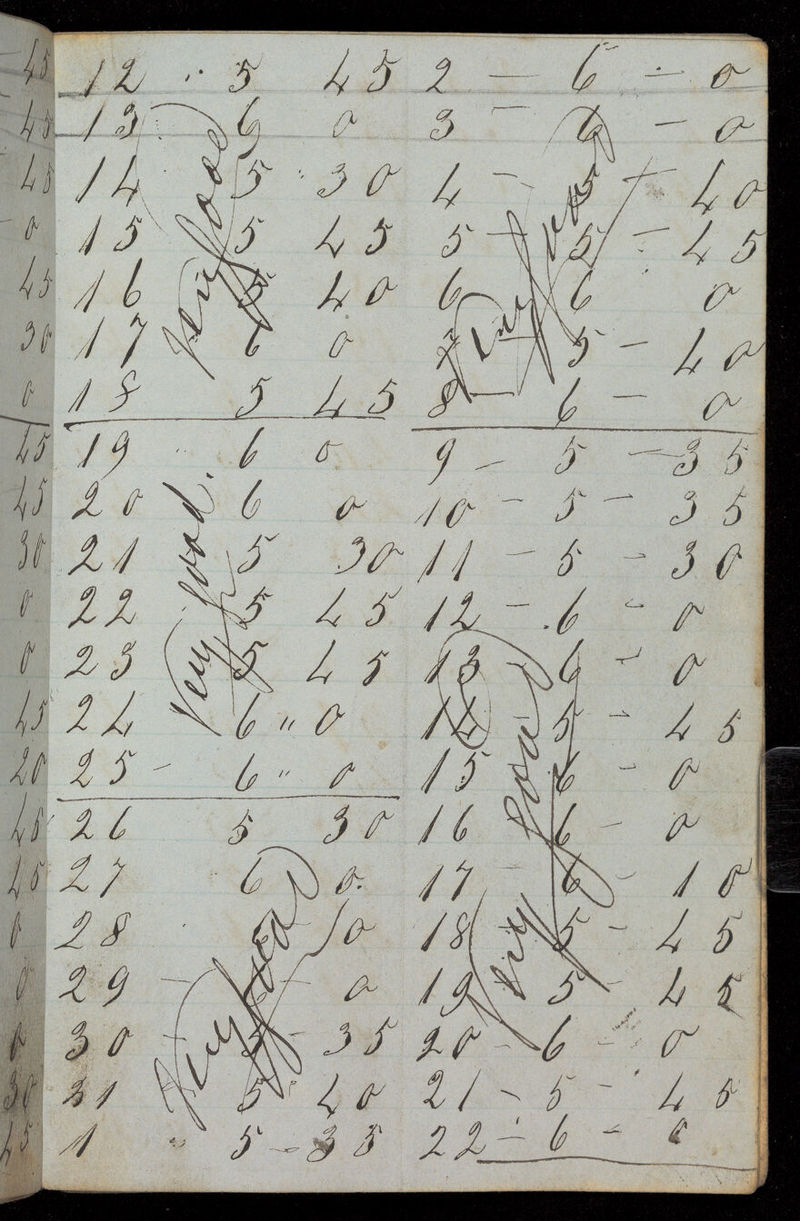 12 5 45
13 6 0
14 5 30
15 5 45
16 5 40
17 6 0
18 5 45
Very good
19 6 0
20 6 0
21 5 30
22 5 45
23 5 45
24 6 " 0
25 - 6 " 0
Very good.
26 5 30
27 6 0.
28 0
29 - 0
30 5 - 35
31 5 40
1 " 5 - 35
Very good
2 - 6 - 0
3 - 6 - 0
4 - 5 - 40
5 - 5 - 45
6 6 0
7 5 - 40
8 - 6 - 0
Very good
9 - 5 - 35
10 - 5 - 35
11 - 5 - 30
12 - 6 - 0
13 6 - 0
14 5 - 45
15 6 - 0
16 6 - 0
17 - 6 - 10
18 5 - 45
19 5 - 45
20 - 6 - 0
21 - 5 - 45
22 - 6 - 0
Very good
45
45
45
0
45
30
0
45
45
30
0
0
45
20
45
45
0
0
0
30
45